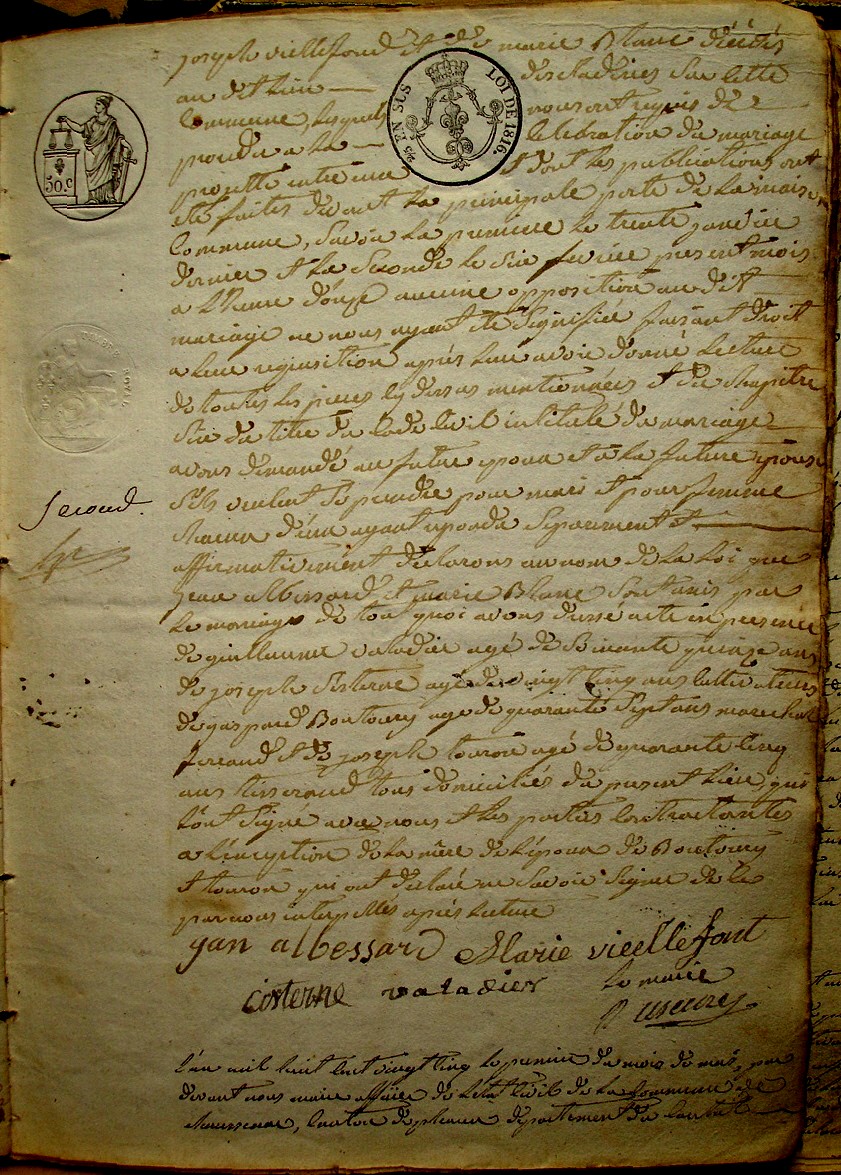 joseph viellefond et de marie Blanc décédés
au dit lieu — des cladines sur cette
Commune, lesquels nous ont requis de
procéder a la — celebration du mariage
projetté entre eux et dont les publications ont
été faites devant la principale porte de la maison
Commune, savoir la premiere le trente janvier
dernier et la seconde le six fevrier present mois
a l'heure d'onze aucune opposition au dit
mariage ne nous ayant été signifiée faisant droit
a leur requisition après leur avoir donné lecture
de toutes les pieces cy dessus mentionnées et du chapitre
six du titre du Code Civil intitulé du mariage
avons demandé au futur epoux et a la future épouse
s'ils veulent se prendre pour mari et pour femme
chacun d'eux ayant repondu separement et
affirmativement declarons au nom de la loi que
jean albessard et marie Blanc sont unis par
le mariage de tout quoi avons dressé acte en presence
de guillaume valadier agé de soixante quinze ans
de joseph Cisterne agé de vingt cinq ans cultivateurs
de gaspard Boutoury age de quarante sept ans marechal
ferrand et de joseph touron agé de quarante cinq
ans tisserand tous domiciliés du present lieu, qui
l'ont signé avec nous et les parties contractantes
a l'exception de la mère de l'époux de Boutoury
et touron qui ont declaré ne savoir signer de ce
par nous interpellés après lecture
jan albessard Marie viellefont
cisterne valadier le maire
l'an mil huit cent vingt cinq le premier du mois de mai, par
devant nous maire officier de l'etat Civil de la Commune de
Canton de pleaux departement du Cantal
second
50 c
EN SUS LOI DE 1816.
TIMBRE ROYAL